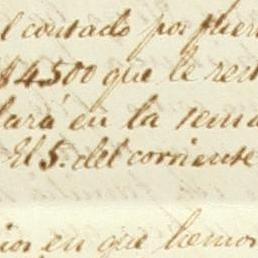 l contado por fuer
$4.500 que le rest
lará en la sema
El 5. del corriente
ios en que hemos